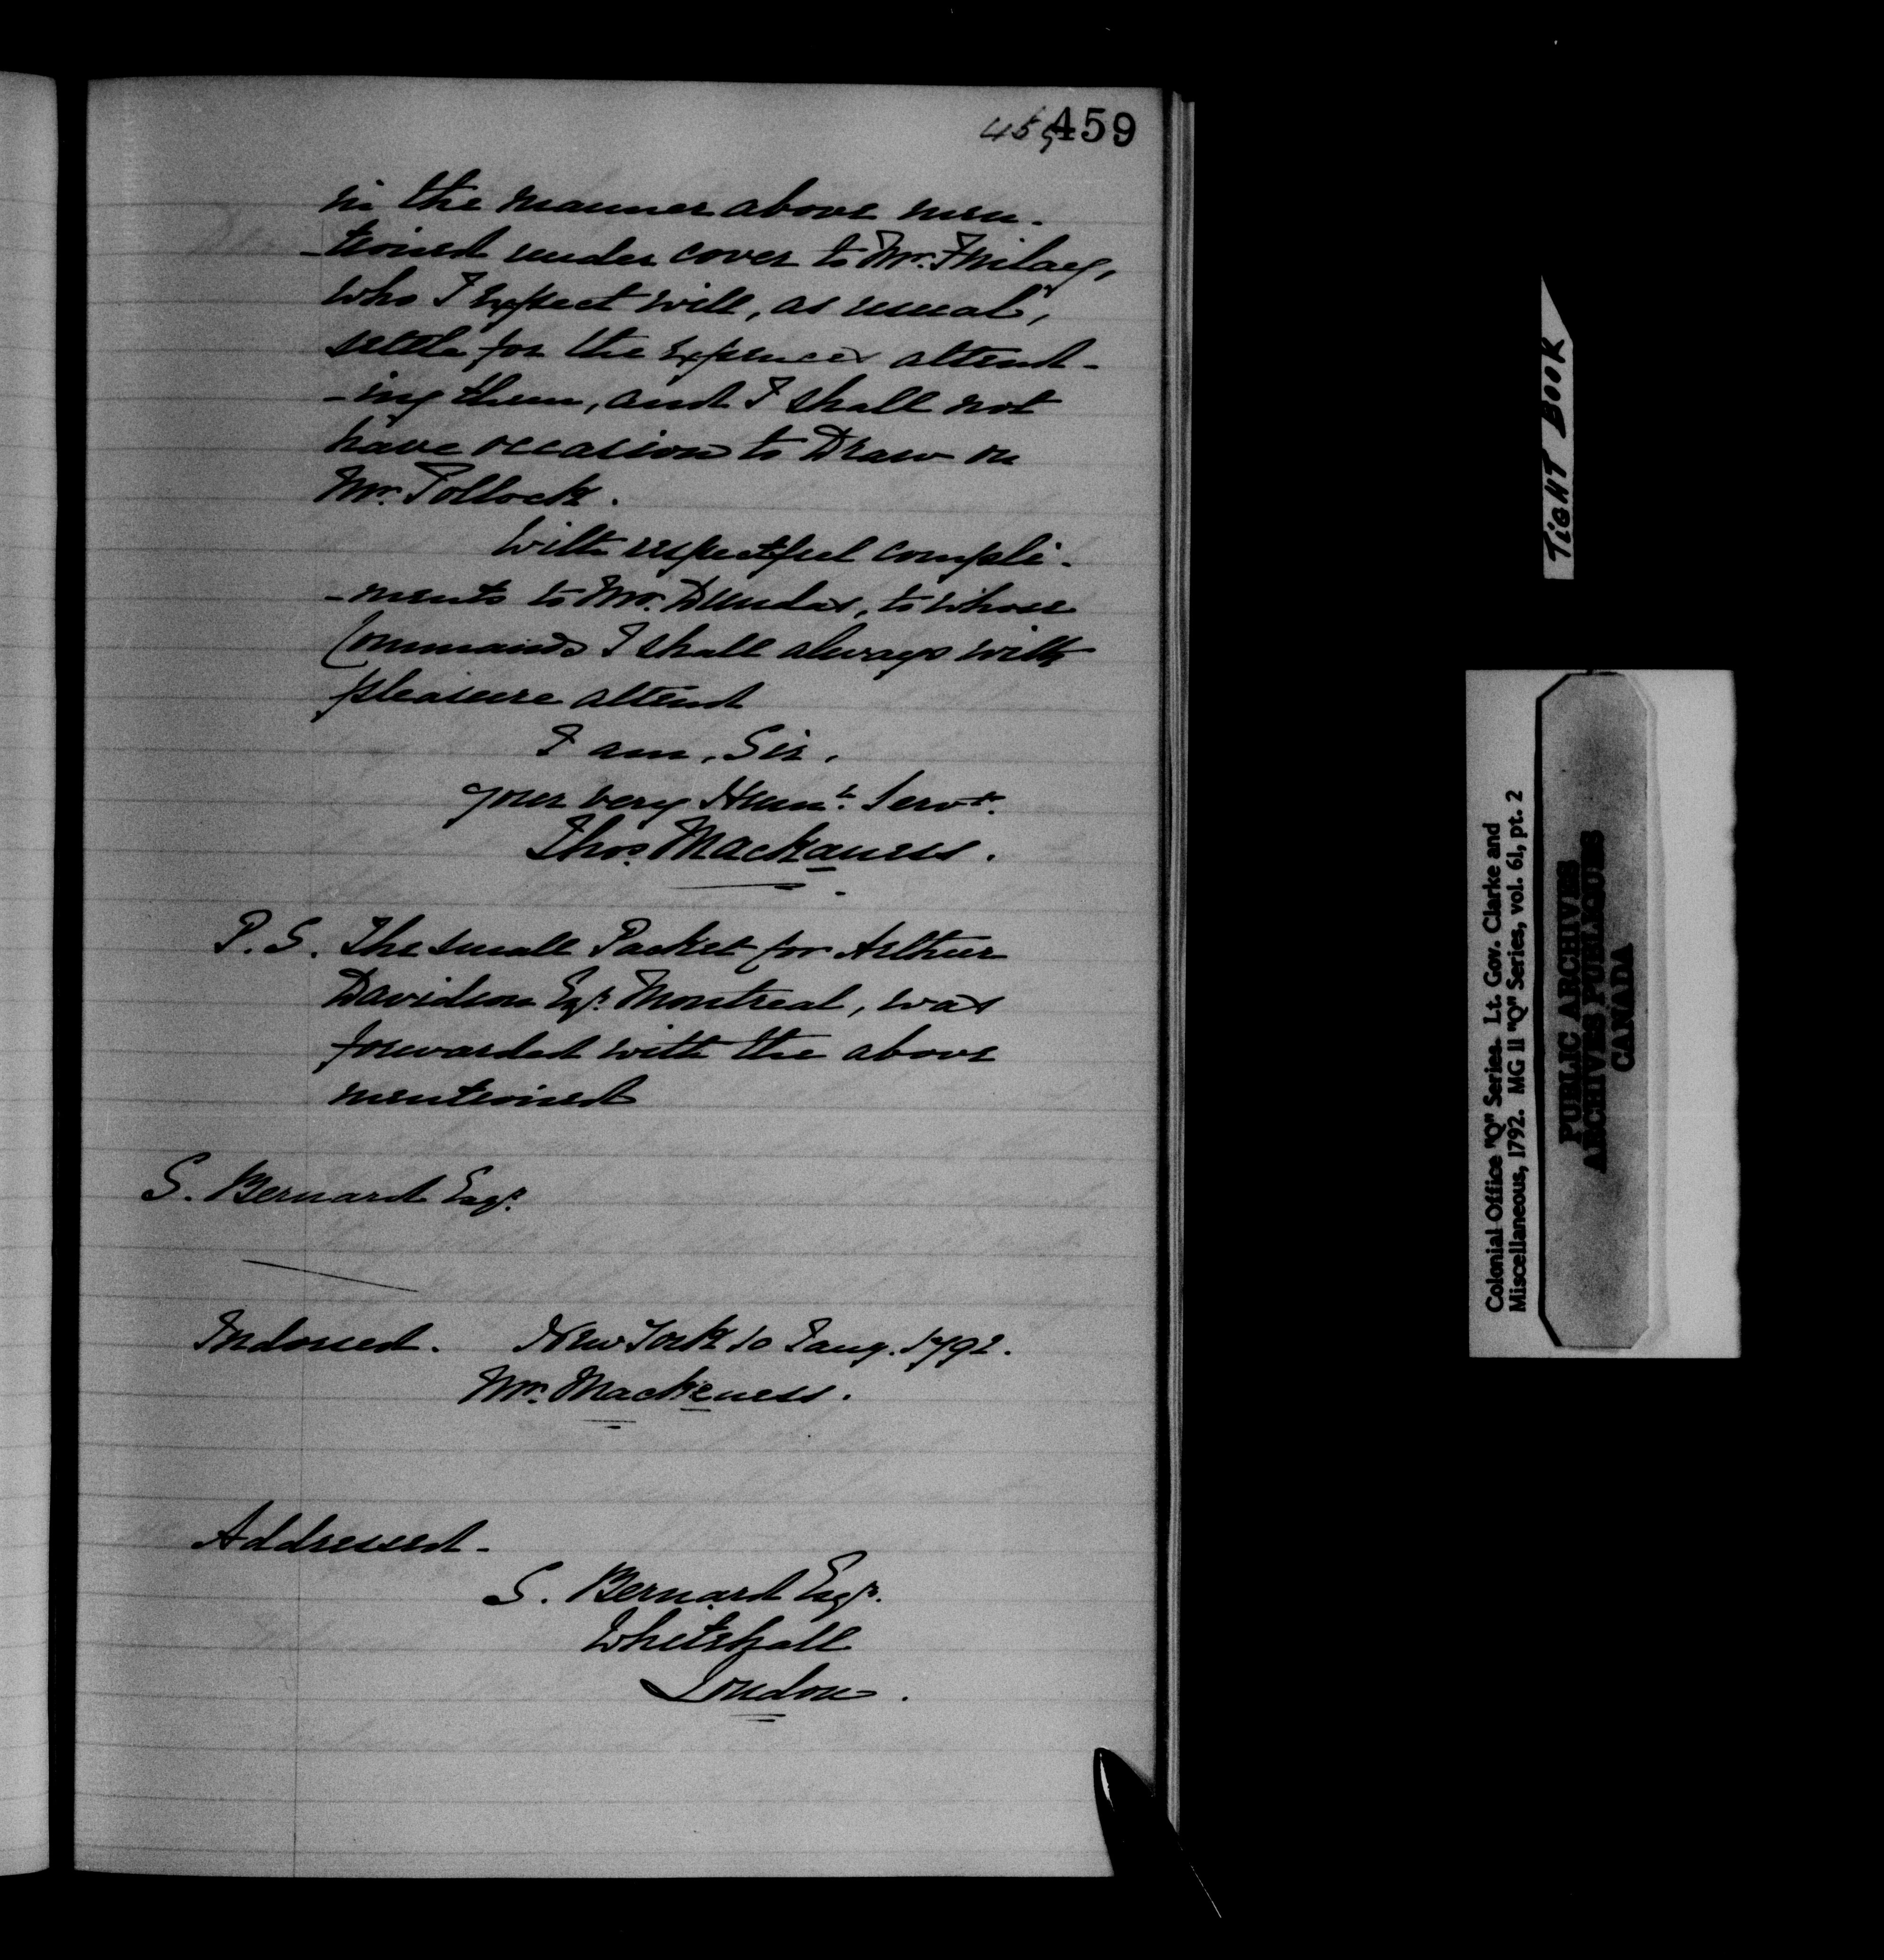 459 459
in the manner above men-
-tioned under cover to Mr. Finlay,
who I expect will, as usual,
settle for the expences attend-
-ing them, and I shall not
have occasion to Draw on
Mr. Pollock.
With respectful compli-
-ments to Mr. Dundas, to whose
Commands I shall always with
pleasure attend
I am, Sir,
your very Humb. Servt.
Thos. Mackaness.
P.S. The small Packet for Arthur
Davidson Esqr. Montreal, was
forwarded with the above
mentioned
S. Bernard Esqr.
Indorsed. New York 10 Jany. 1792.
Mr. Mackeness.
Addressed-
S. Bernard Esqr.
Whitehall
London.
TIGHT BOOK
Colonial Office "Q" Series. Lt. Gov. Clarke and
Miscellaneous, 1792. MG 11 "Q" Series, vol. 61, pt. 2
PUBLIC ARCHIVES
ARCHIVES PUBLIQUES
CANADA